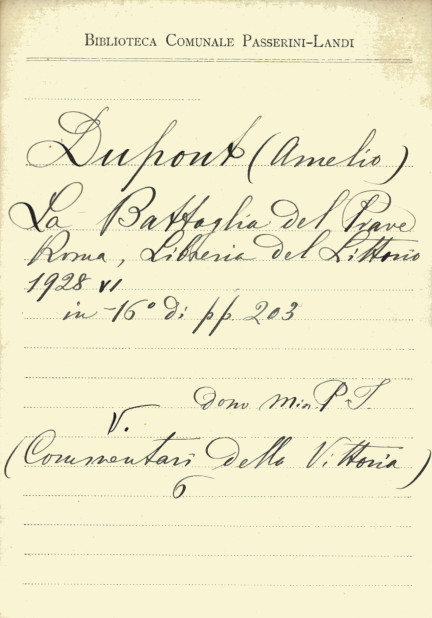 BIBLIOTECA COMUNALE PASSERINI-LANDI
Dupont (Amelio)
La Battaglia del Piave
Roma, Libreria del Littorio
1928 VI
in -16° di pp. 203
dono Min. P. I.
V.
(Commentari della Vittoria)
6